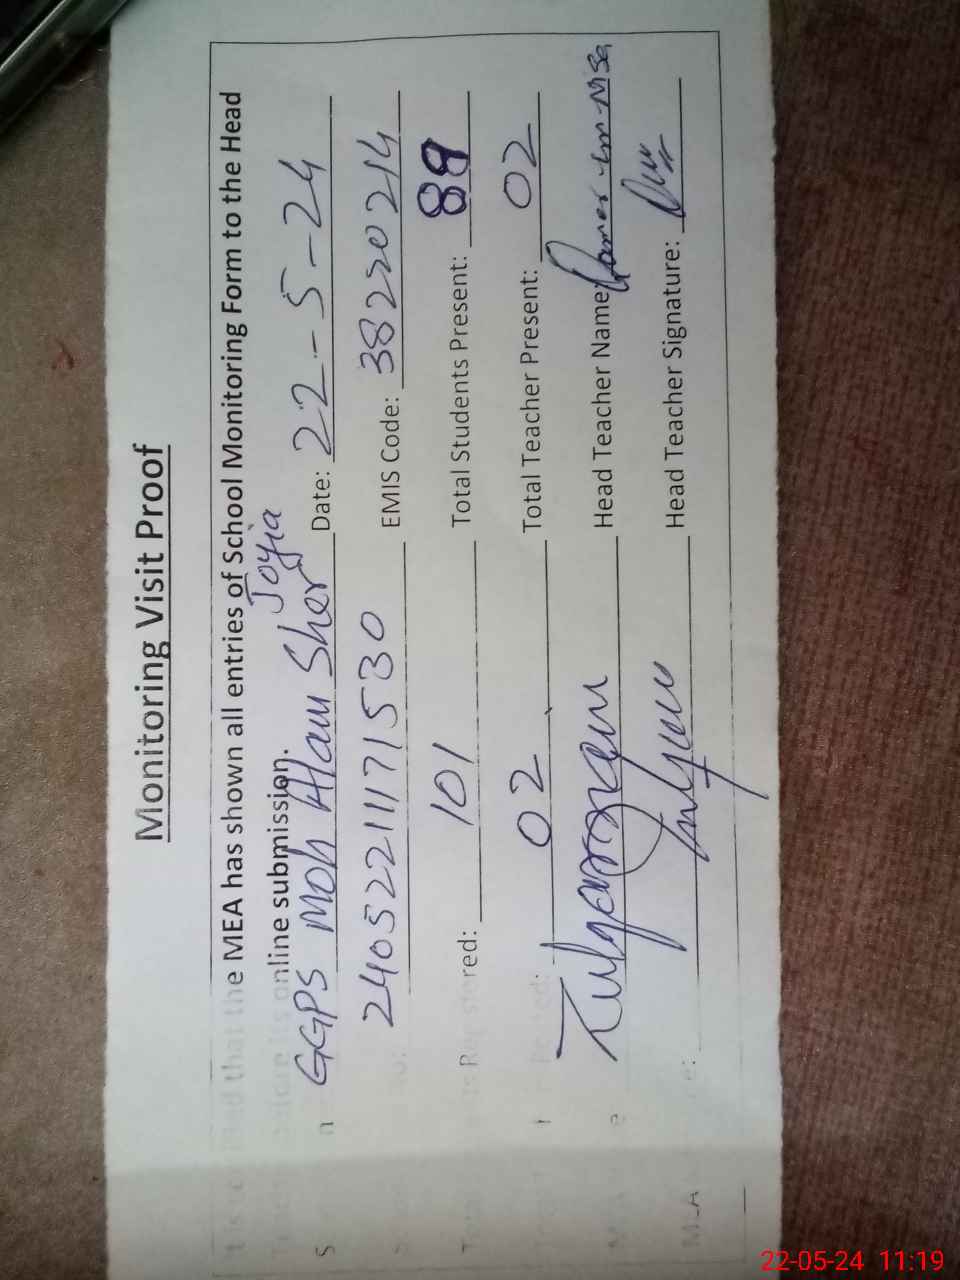 Monitoring Visit Proof
that the MEA has shown all entries of School Monitoring Form to the Head
before its online submission.
GGPS Moh Alam Sher Joyia Date: 22-5-24
24052211171530 EMIS Code: 38220214
Registered: 101 Total Students Present: 89
02 Total Teacher Present: 02
Head Teacher Name:
MEA Head Teacher Signature:
22-05-24 11:19